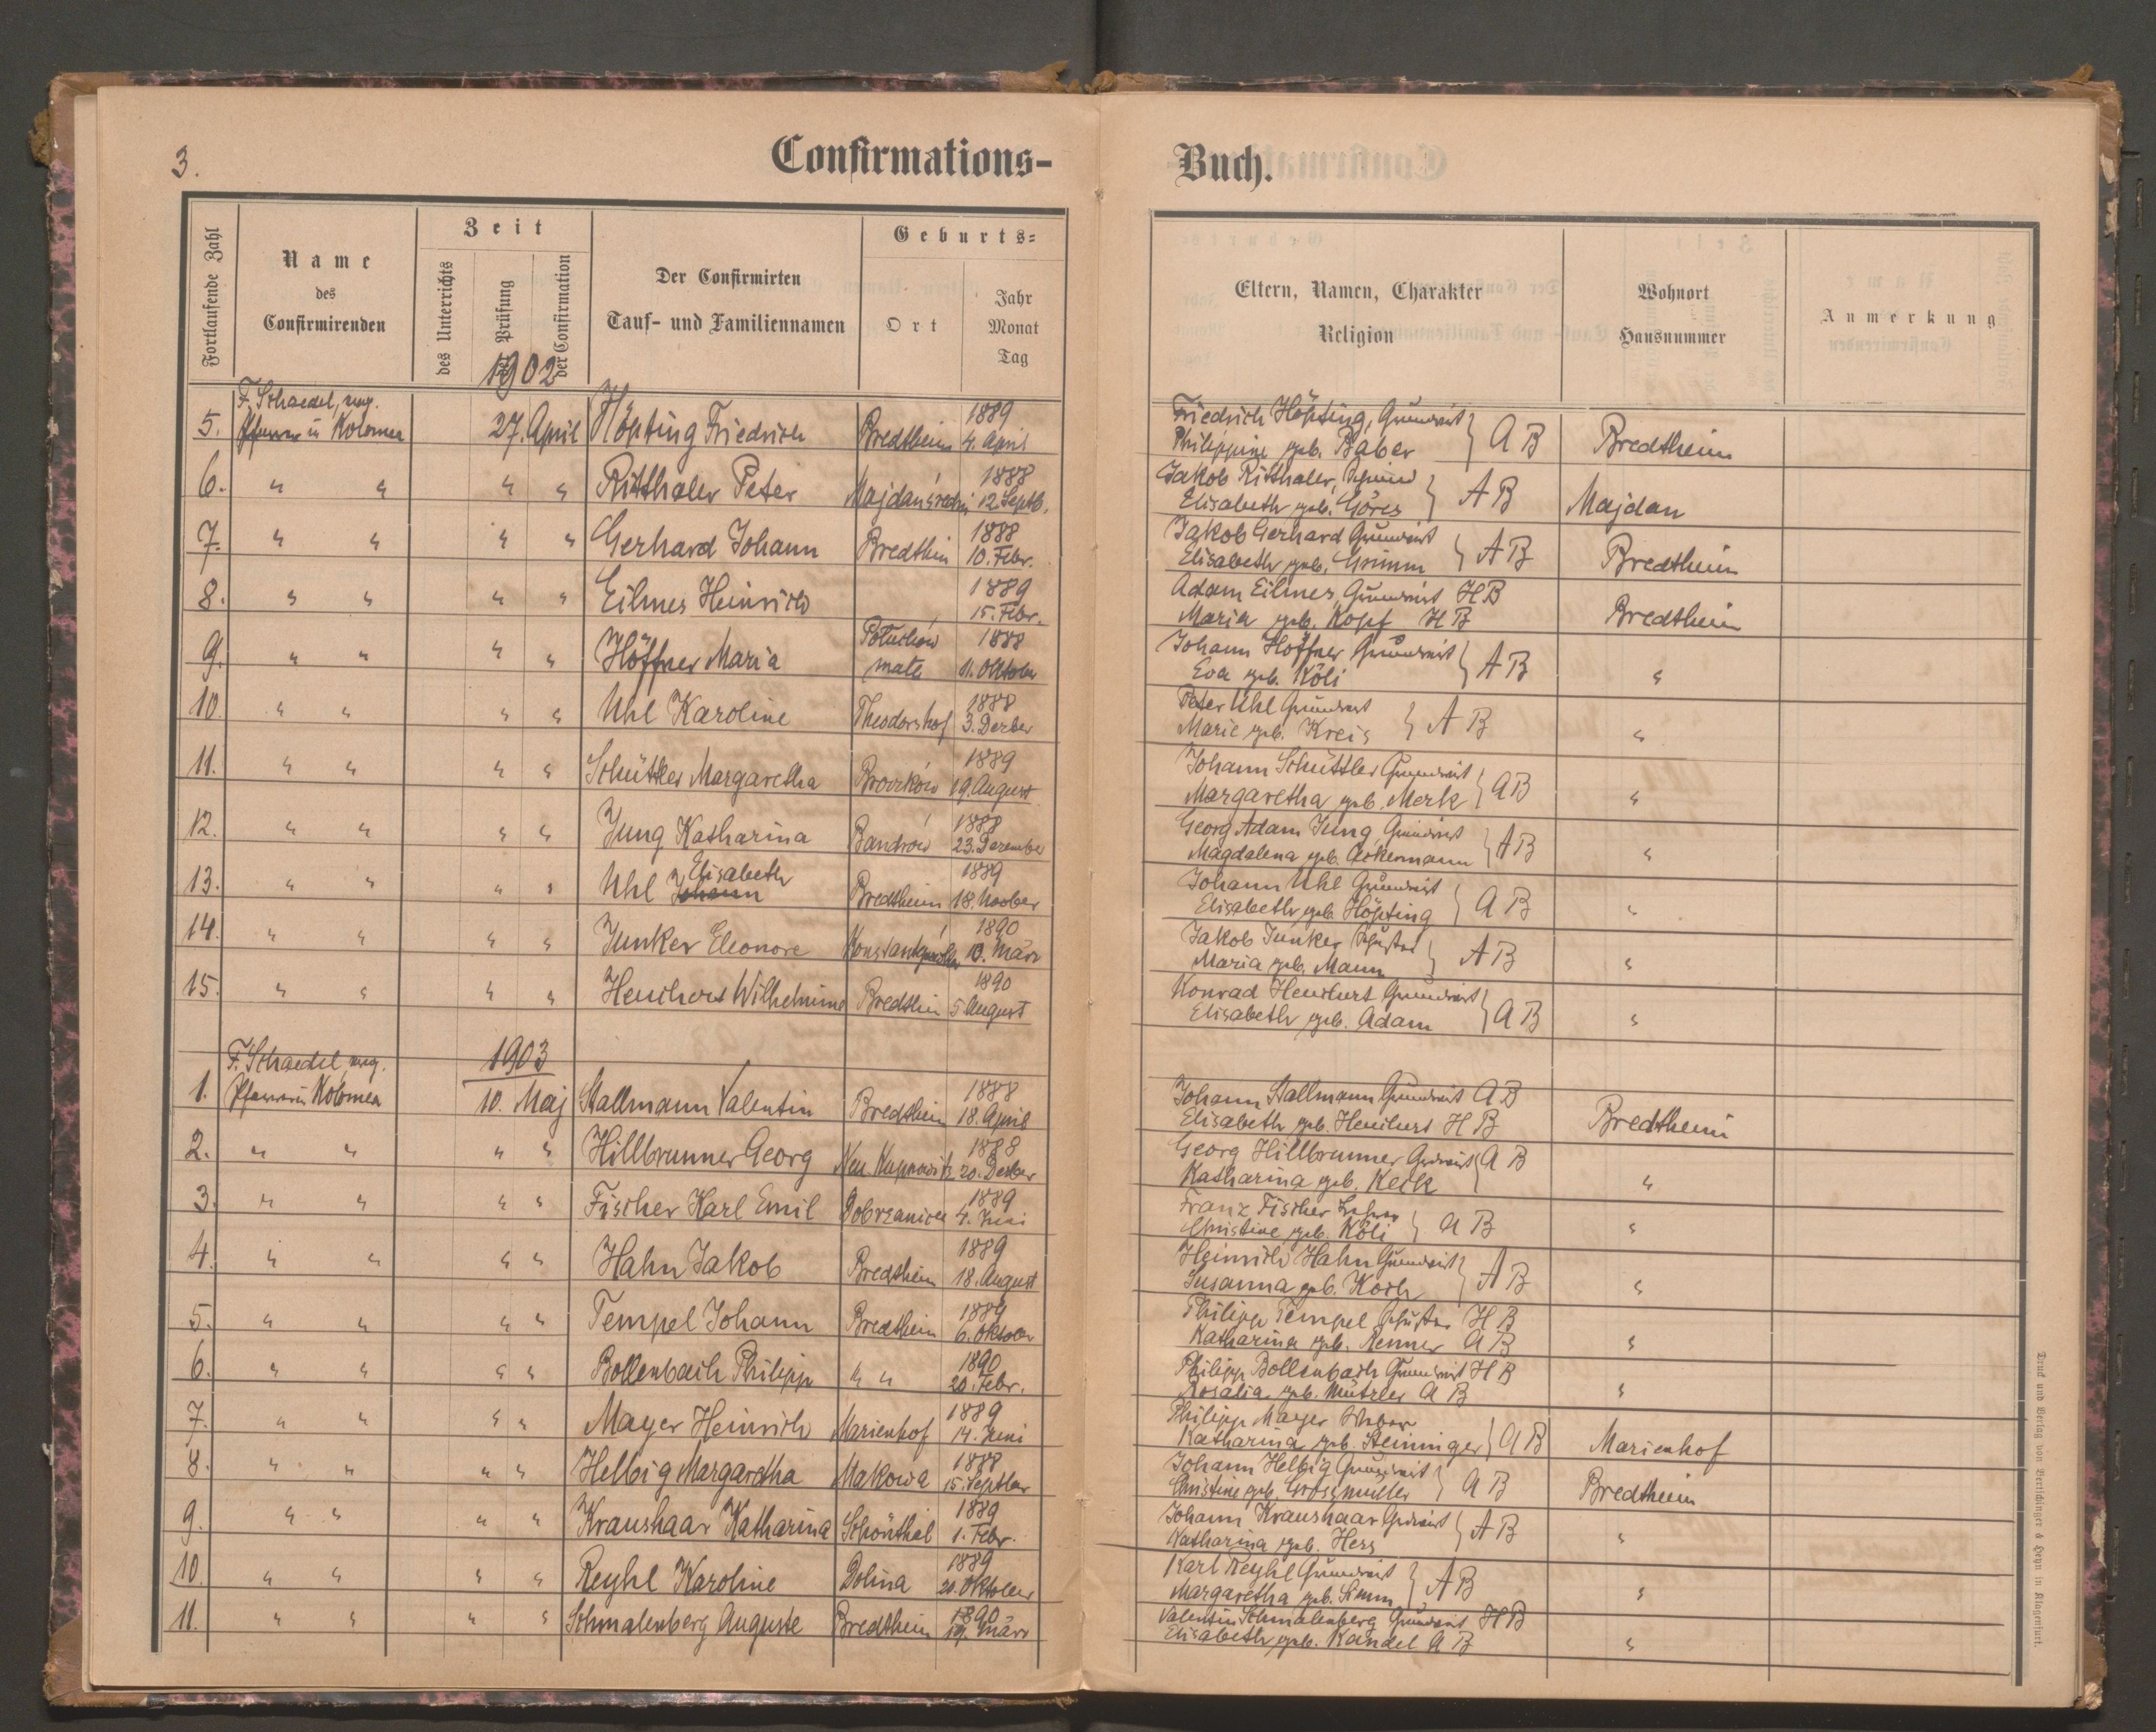 3.
Confirmations-
Buch.
Fortlaufende Zahl
Name
des
Confirmirenden
Zeit
des Unterrichts
der Prüfung
der Confirmation
Der Confirmirten
Tauf- und Familiennamen
Geburts-
Ort
Jahr
Monat
Tag
Eltern, Namen, Charakter
Religion
Wohnort
Hausnummer
Anmerkung
1902
5. F. Schaedel, ev. Pfarrer in Kolomea 27. April Höpting Friedrich Bredtheim 1889 4. April Friedrich Höpting, Grundwirt
Philippine geb. Baber } A B Bredtheim
6. " " " " Ritthaler Peter Majdan średni 1888 12 Septb. Jakob Ritthaler, Schmied
Elisabeth geb. Göres } A B Majdan
7. " " " " Gerhard Johann Bredtheim 1888 10. Febr. Jakob Gerhard Grundwirt
Elisabeth geb. Grimm } A B Bredtheim
8. " " " " Eilmes Heinrich 1889 15. Febr. Adam Eilmes Grundwirt H B
Maria geb. Kopf H B Bredtheim
9. " " " " Höffner Maria 1888 11. Oktober Johann Höffner Grundwirt
Eva geb. Köli } A B "
10. " " " " Uhl Karoline Theodorshof 1888 3. Dezber Peter Uhl Grundwirt
Marie geb. Kreis } A B "
11. " " " " Schüttler Margaretha 1889 19. August Johann Schüttler Grundwirt
Margaretha geb. Merk } A B "
12. " " " " Jung Katharina Bandrów 1888 23. Dezember Georg Adam Jung, Grundwirt
Magdalena geb. Ackermann } A B "
13. " " " " Uhl Johann Elisabeth Bredtheim 1889 18. Novber Johann Uhl Grundwirt
Elisabeth geb. Höpting } A B "
14. " " " " Junker Eleonore 1890 10. März Jakob Junker Schuster
Maria geb. Mann } A B "
15. " " " " Henihert Wilhelmine Bredtheim 1890 5 August Konrad Henihert Grundwirt
Elisabeth geb. Adam } A B "
1903
1. F. Schaedel, ev. Pfarrer in Kolomea 10. Maj Stallmann Valentin Bredtheim 1888 18. April Johann Stallmann Grundwirt A B
Elisabeth geb. Henihert H B Bredtheim
2. " " " " Hillbrunner Georg Neu. Kupnowitz 1888 20. Dezber Georg Hillbrunner Grdwirt
Katharina geb. Keck { A B "
3. " " " " Fischer Karl Emil Dobrzanica 1889 4. Juni Franz Fischer Lehrer
Christine geb. Köli } A B "
4. " " " " Hahn Jakob Bredtheim 1889 18. August Heinrich Hahn Grundwirt
Susanna geb. Koch } A B "
5. " " " " Tempel Johann Bredtheim 1889 6. Oktober Philipp Tempel Schuster H B
Katharina geb. Renner A B "
6. " " " " Bollenbach Philipp " " 1890 20. Febr. Philipp Bollenbach Grundwirt H B
Rosalia geb. Mützler A B "
7. " " " " Mayer Heinrich Marienhof 1889 14. Juni Philipp Mayer Weber
Katharina geb. Steininger } A B Marienhof
8. " " " " Helbig Margaretha Makowa 1888 15. Septber Johann Helbig Grundwirt
Christine geb. Grossmüller } A B Bredtheim
9. " " " " Kraushaar Katharina Schönthal 1889 1. Febr. Johann Kraushaar Grdwirt
Katharina geb. Hess } A B "
10. " " " " Reyhl Karoline Dolina 1889 20. Oktober Karl Reyhl Grundwirt
Margaretha geb. } A B "
11. " " " " Schmalenberg Auguste Bredtheim 1890 19. März Valentin Schmalenberg Grundwirt H B
Elisabeth geb. Kandel A B "
Druck und Verlag von Bertschinger & Heyn in Klagenfurt.